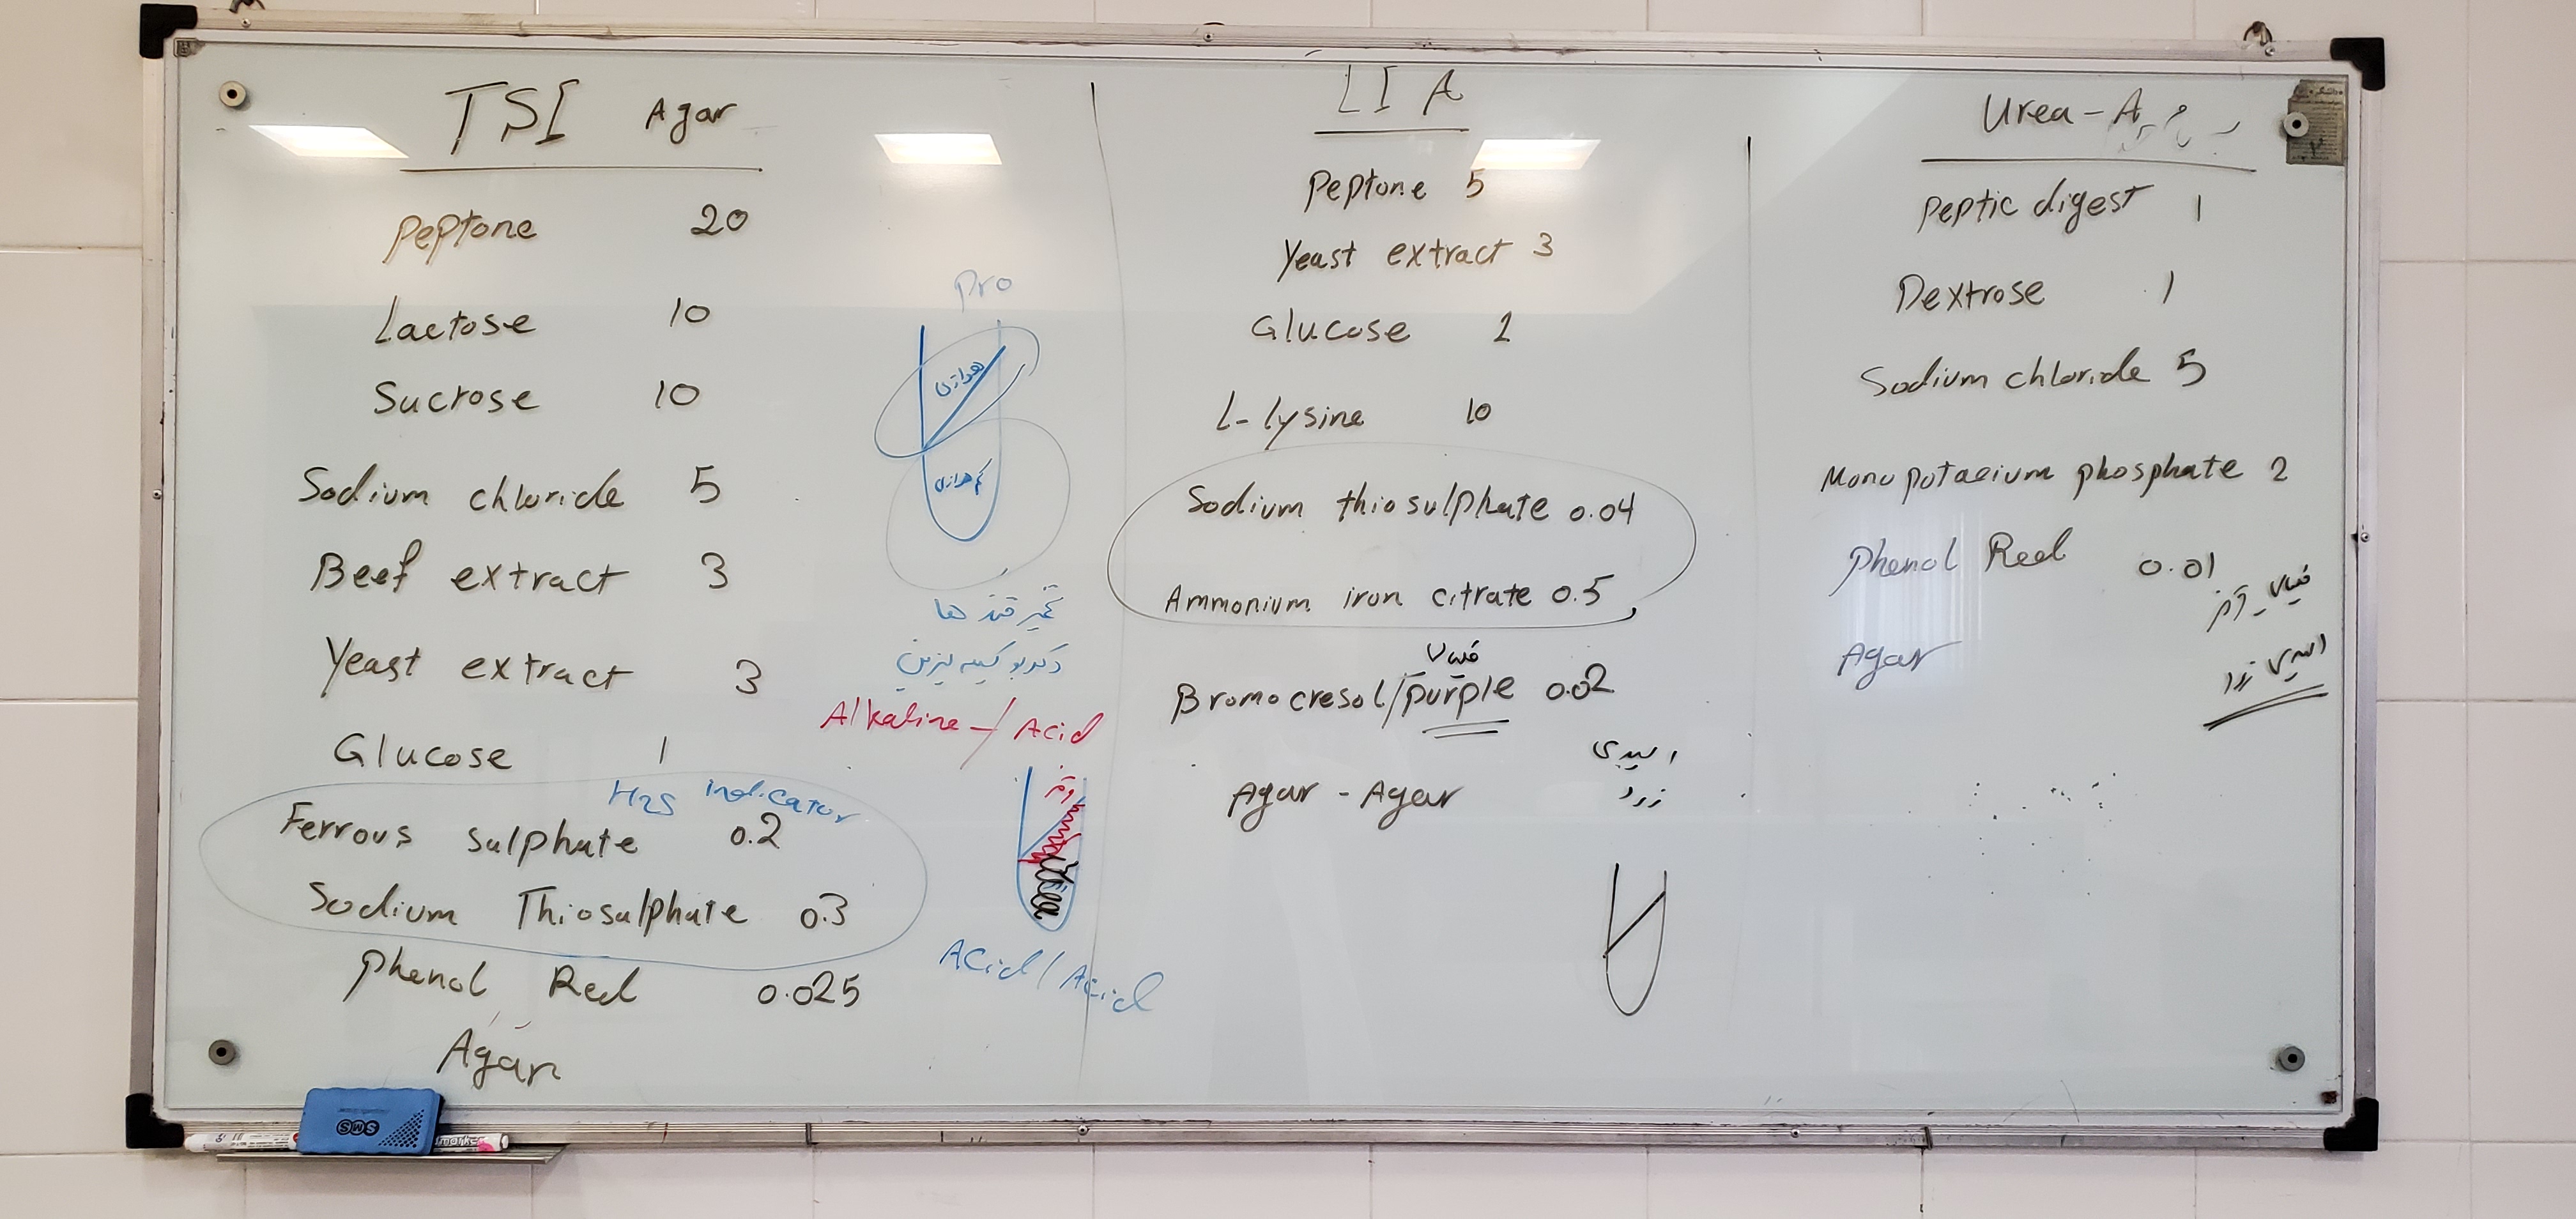 TSI Agar
Peptone 20
Lactose 10
Sucrose 10
Sodium chloride 5
Beef extract 3
Yeast extract 3
Glucose 1
H2S indicator
Ferrous sulphate 0.2
Sodium Thiosulphate 0.3
Phenol Red 0.025
Agar
Pro
هوازی
کم هوازی
تخمیر قند ها
دکربوکسیله لیزین
Alkaline / Acid
قرمز
Acid / Acid
LIA
Peptone 5
Yeast extract 3
Glucose 1
L-lysine 10
Sodium thiosulphate 0.04
Ammonium iron citrate 0.5
قلیایی
Bromocresol/purple 0.02
اسیدی
زرد
Agar - Agar
Urea-A
Peptic digest 1
Dextrose 1
Sodium chloride 5
Mono potasium phosphate 2
Phenol Red 0.01
Agar
اسیدی زرد
SMS
marker